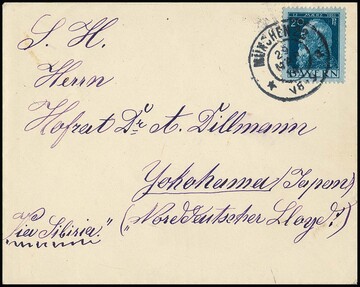 MÜNCHEN
BAYERN
S. H.
Herrn
Hofrat Dr. A. Dillmann
Yokohama (Japan)
via Sibiria." ("Norddeutscher Lloyd".)